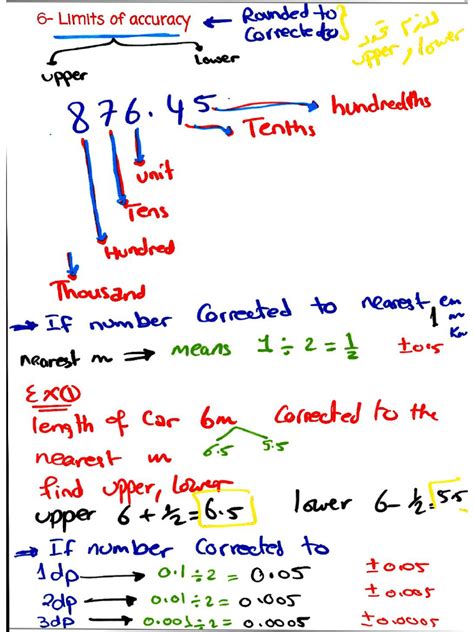 6- Limits of accuracy ← Rounded to
Corrected to
لازم تجد
upper, lower
upper lower
876.45 hundredths
Tenths
unit
Tens
Hundred
Thousand
→ If number Corrected to nearest cm
1 m
Km
nearest m ⇒ means 1 ÷ 2 = 1/2 ±0.5
EX①
length of Car 6m Corrected to the
6.5 5.5
nearest m
find upper, Lower
upper 6 + 1/2 = 6.5 lower 6 - 1/2 = 5.5
→ If number Corrected to
1dp → 0.1 ÷ 2 = 0.05 ±0.05
2dp → 0.01 ÷ 2 = 0.005 ±0.005
3dp → 0.001 ÷ 2 = 0.0005 ±0.0005